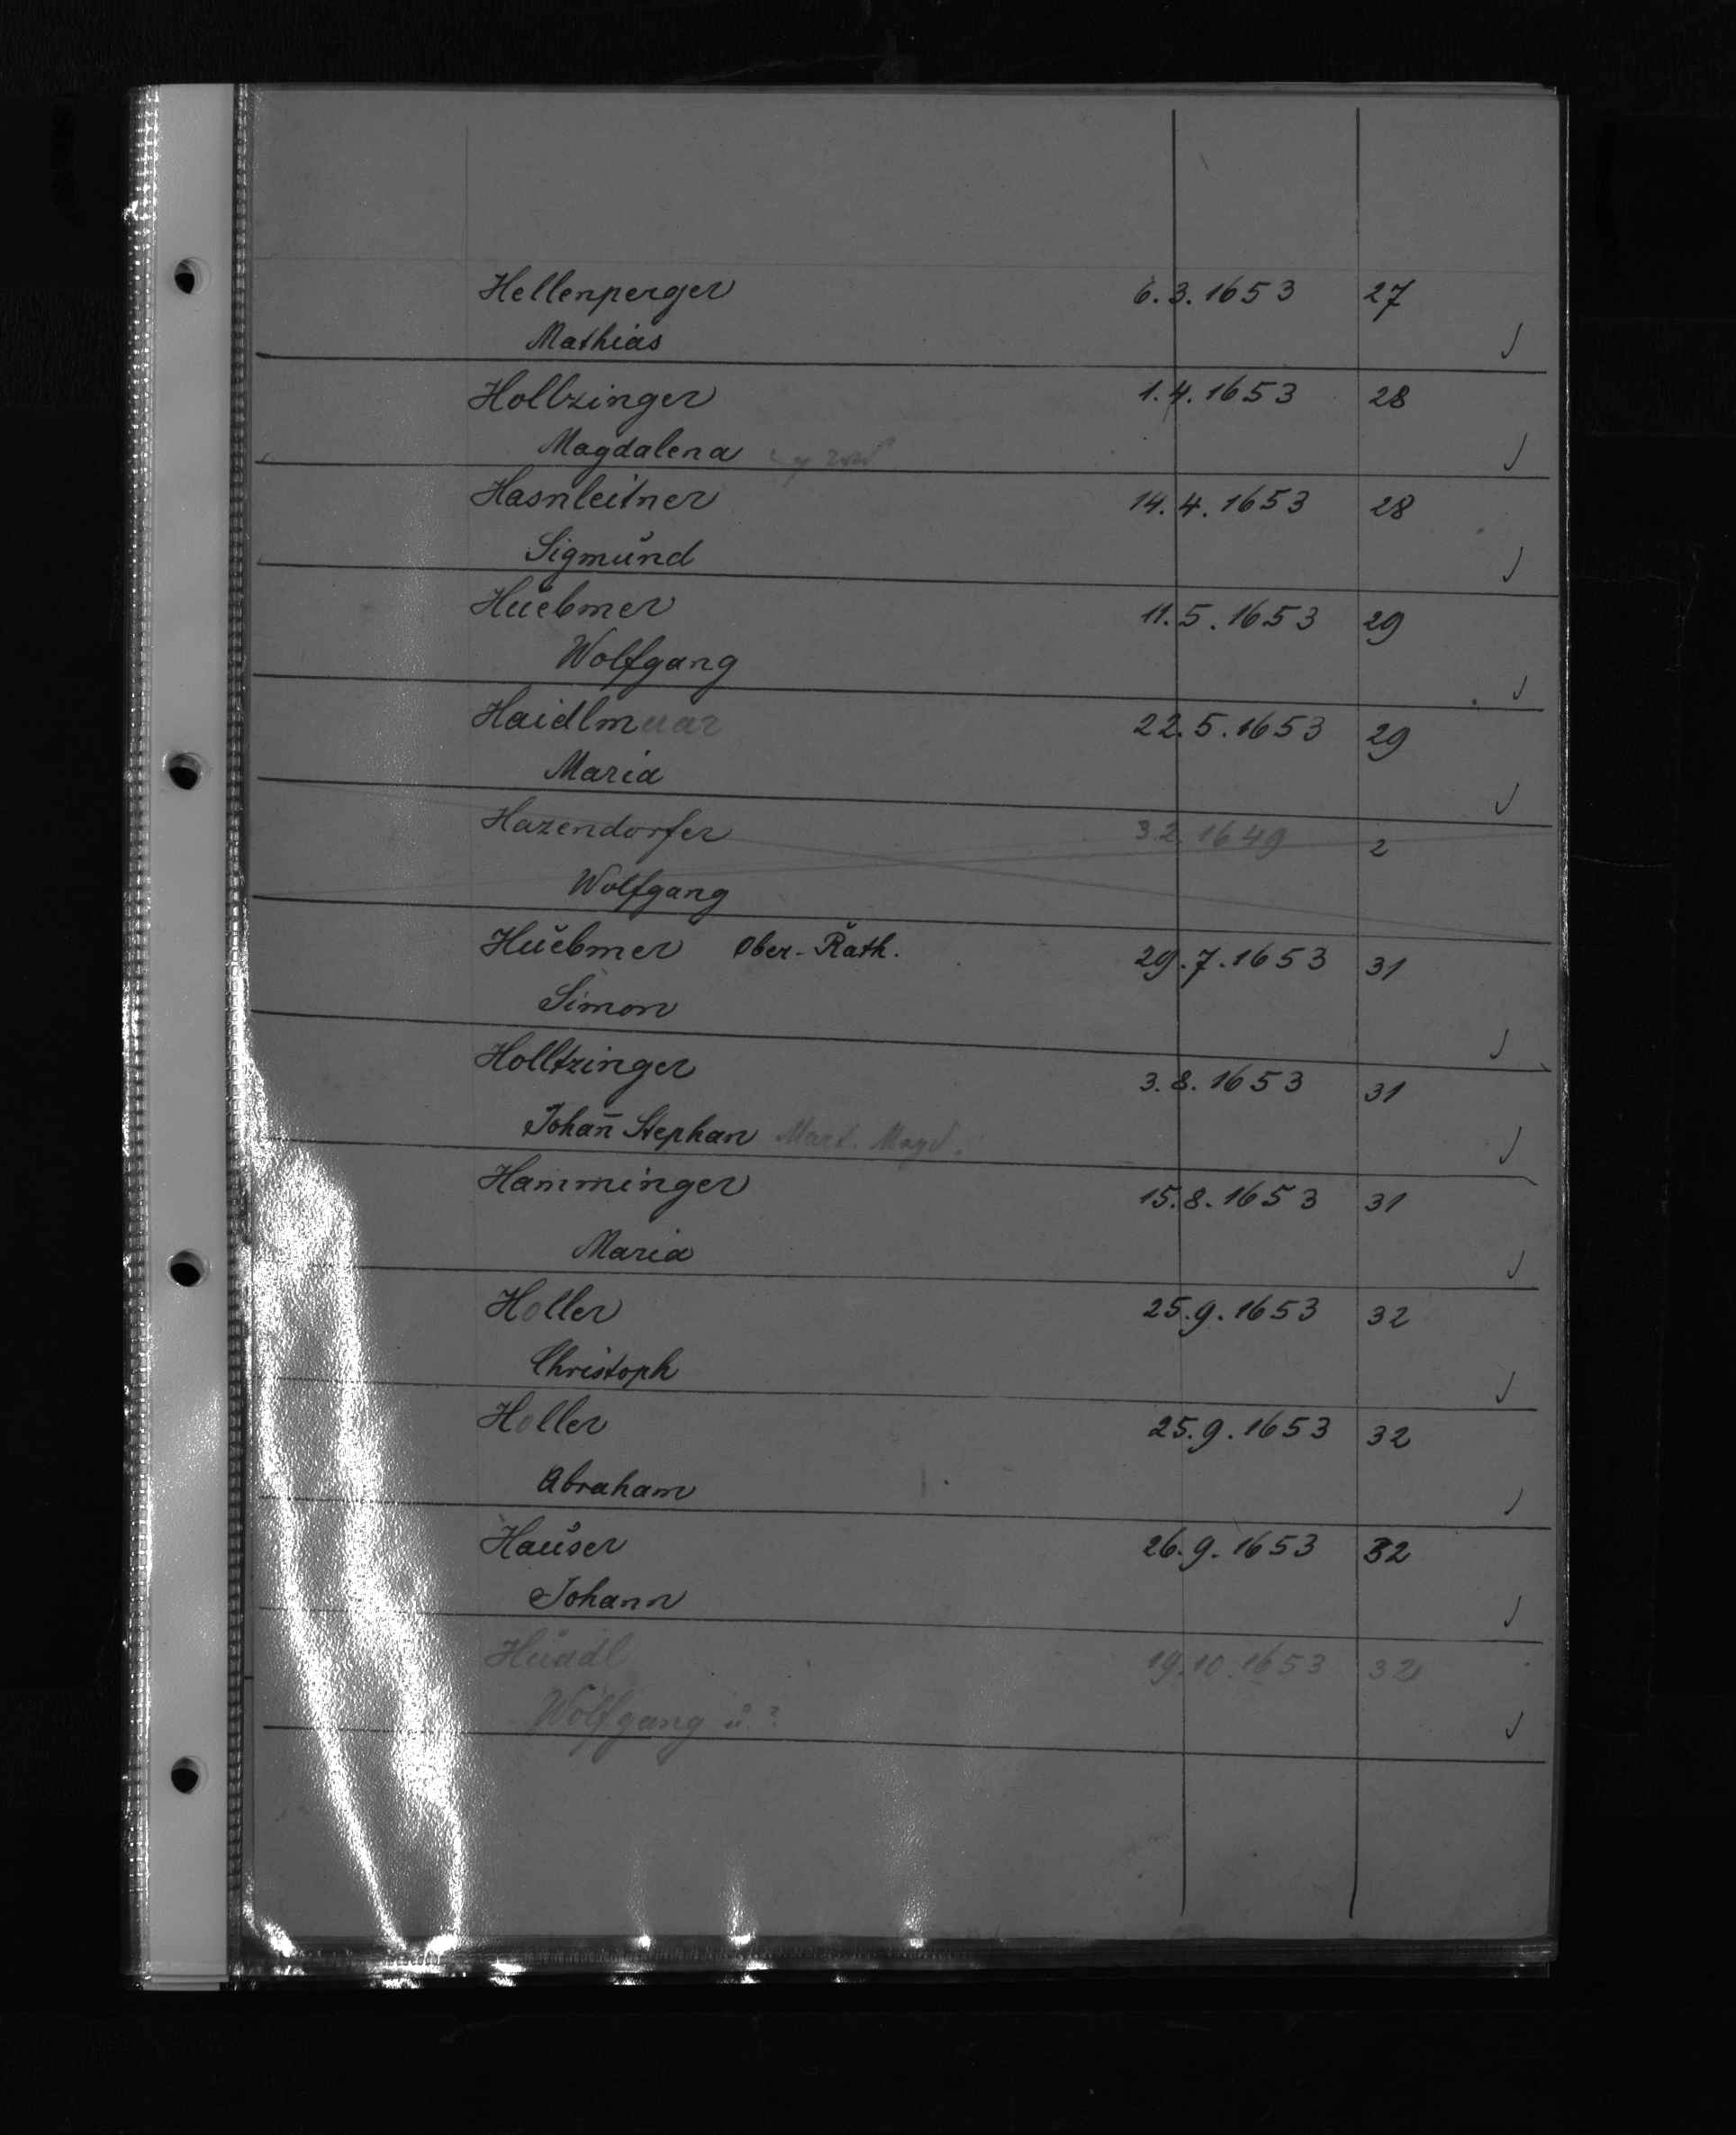 Hellenperger 6.3.1653 27
Mathias ✓
Hollzinger 1.4.1653 28
Magdalena ✓
Hasnleitner 14.4.1653 28
Sigmund ✓
Huebmer 11.5.1653 29
Wolfgang ✓
Haidlmuar 22.5.1653 29
Maria ✓
Hazendorfer 3.2.1649 2
Wolfgang
Huebmer Ober-Rath. 29.7.1653 31
Simon ✓
Holltzinger 3.8.1653 31
Johan̄ Stephan Mart. Magd. ✓
Hamminger 15.8.1653 31
Maria ✓
Holler 25.9.1653 32
Christoph ✓
Holler 25.9.1653 32
Abraham ✓
Hauser 26.9.1653 32
Johann ✓
19.10.1653 32
Wolfgang u. ? ✓